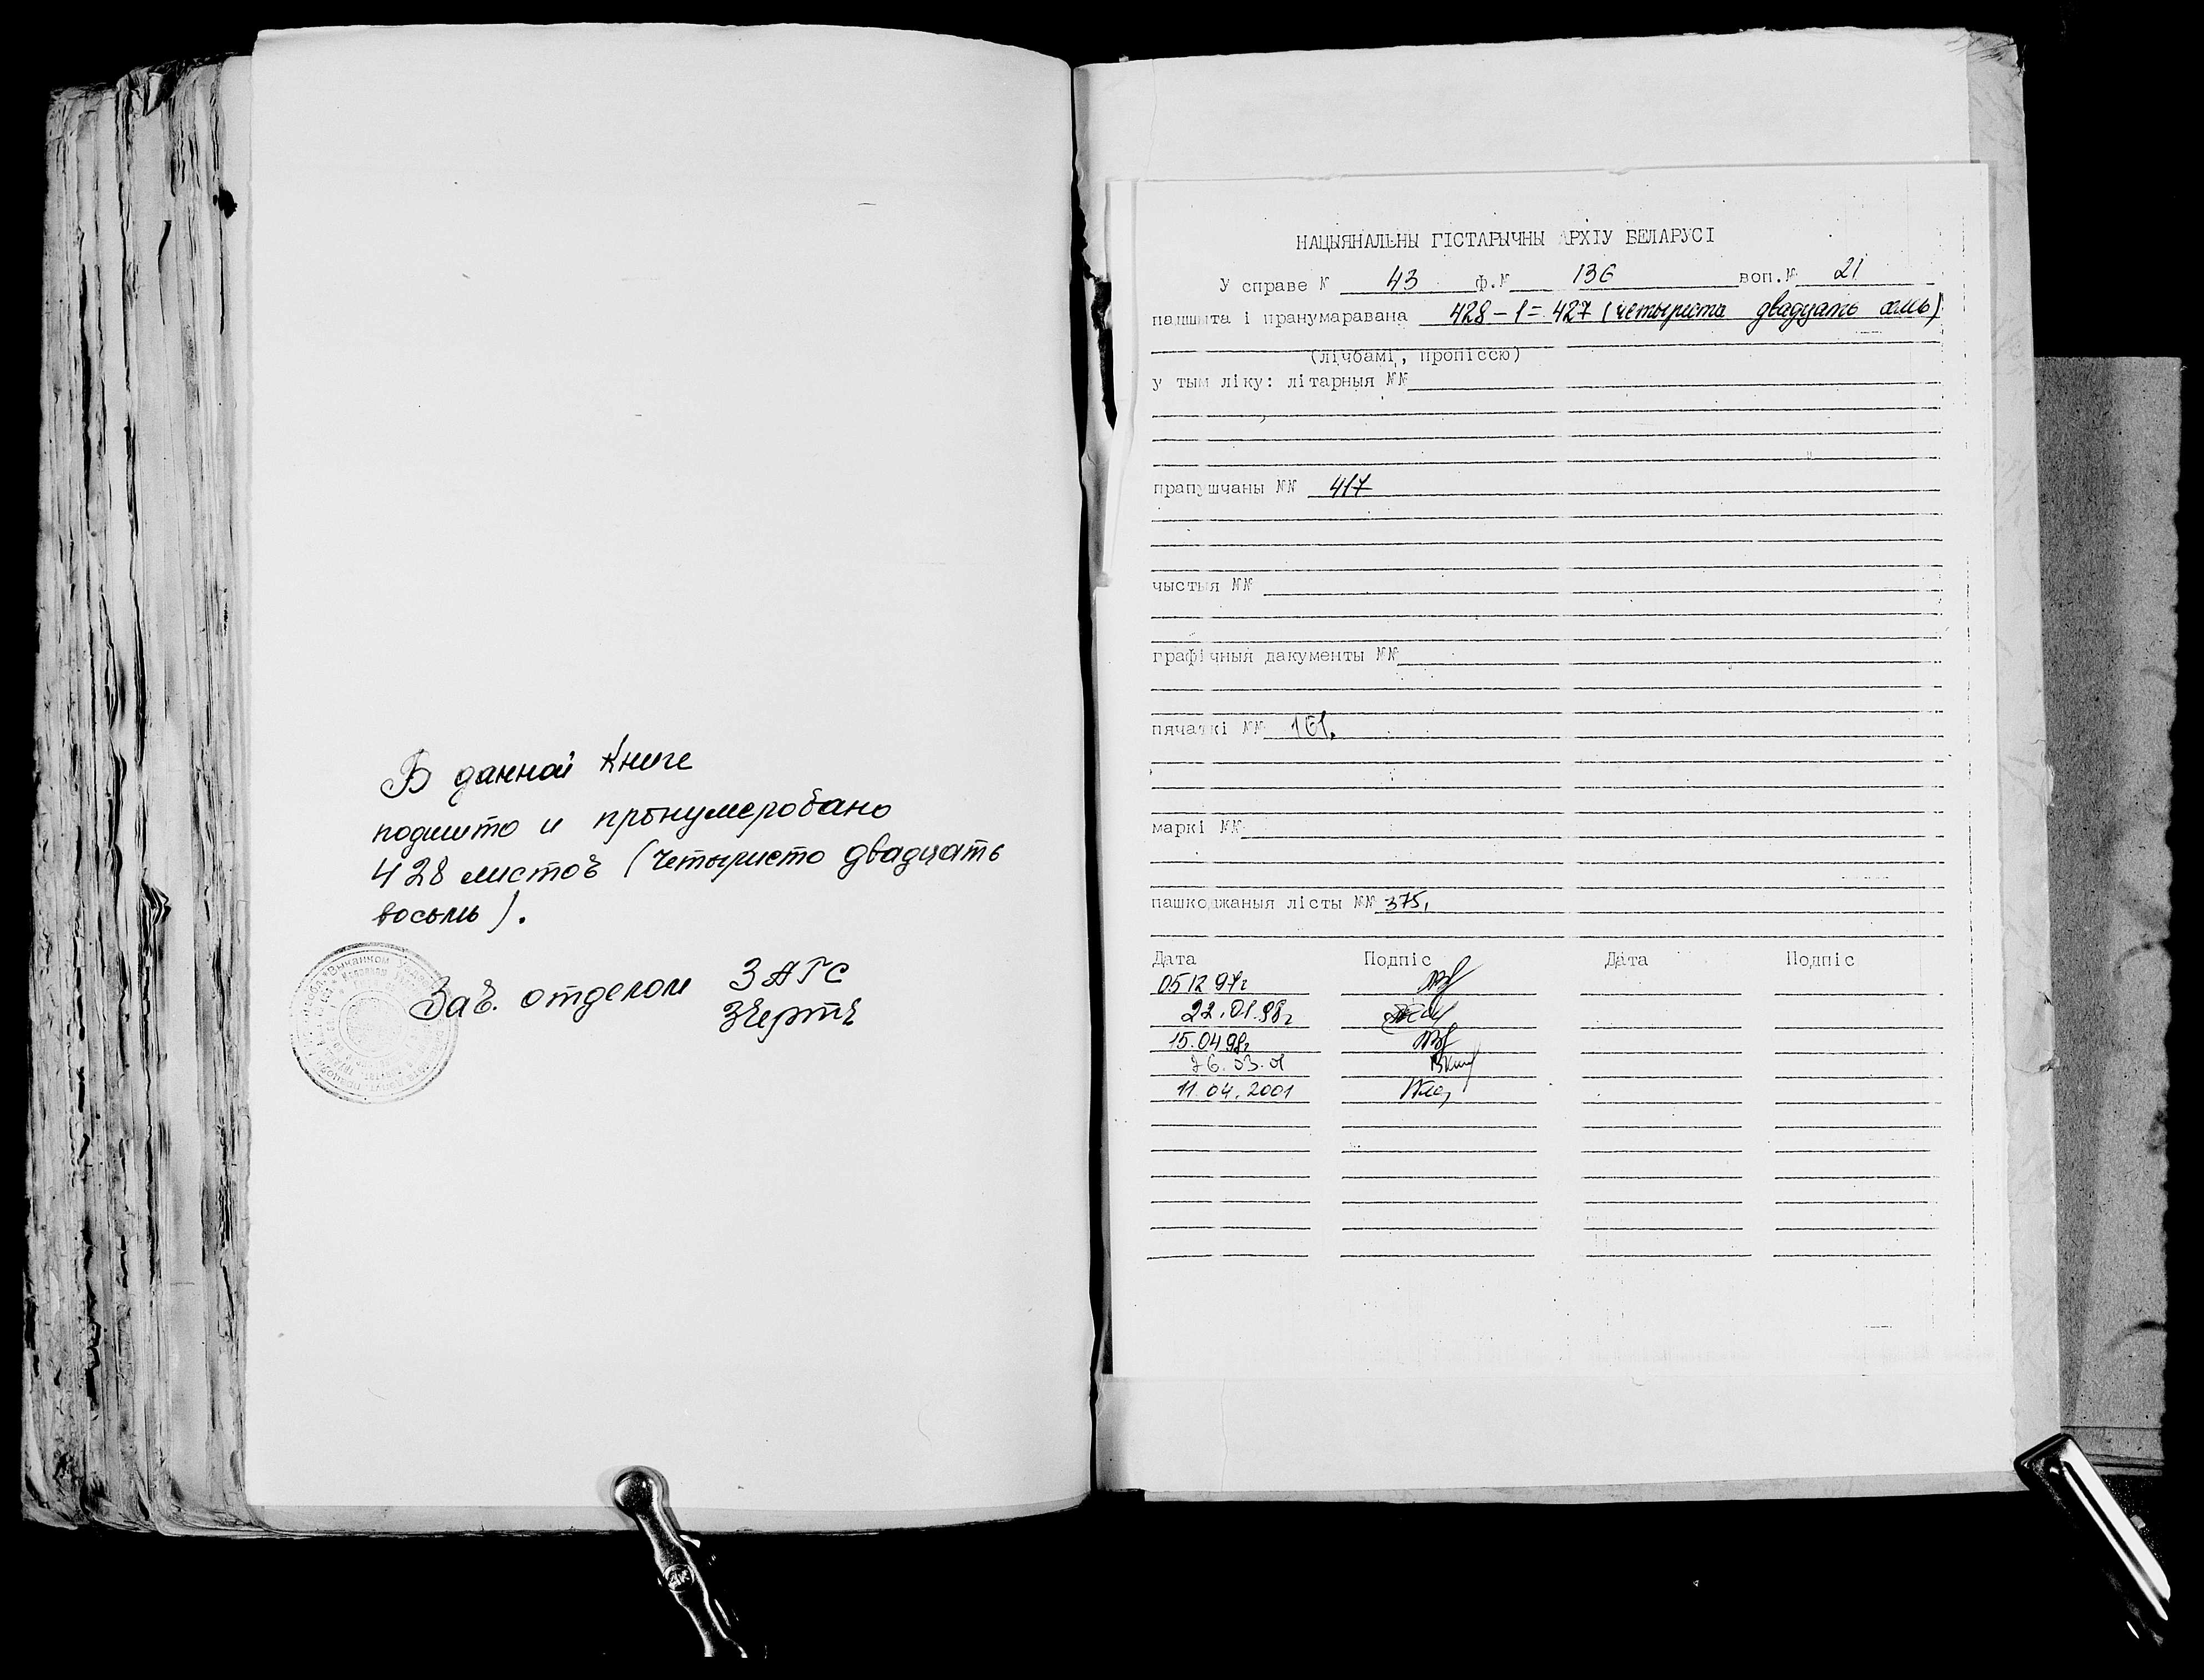 В данной книге
подшито и пронумеровано
428 листов (четыристо двадцать
восемь).
Зав. отделом ЗАГС
НАЦЫЯНАЛЬНЫ ГІСТАРЫЧНЫ АРХІЎ БЕЛАРУСІ
У справе № 43 ф.№ 136 воп.№ 21
падшыта і пранумаравана 428-1=427 (четыриста двадцать семь)
(лічбамі, пропіссю)
у тым ліку: літарныя №№
прапушчаны №№ 417
чыстыя №№
графічныя дакументы №№
пячаткі №№ 161.
маркі №№
пашкоджаныя лісты №№ 375,
Дата Подпіс Дата Подпіс
05 12 97г
22.01.98г
15.04 98г
26.03.01
11.04.2001